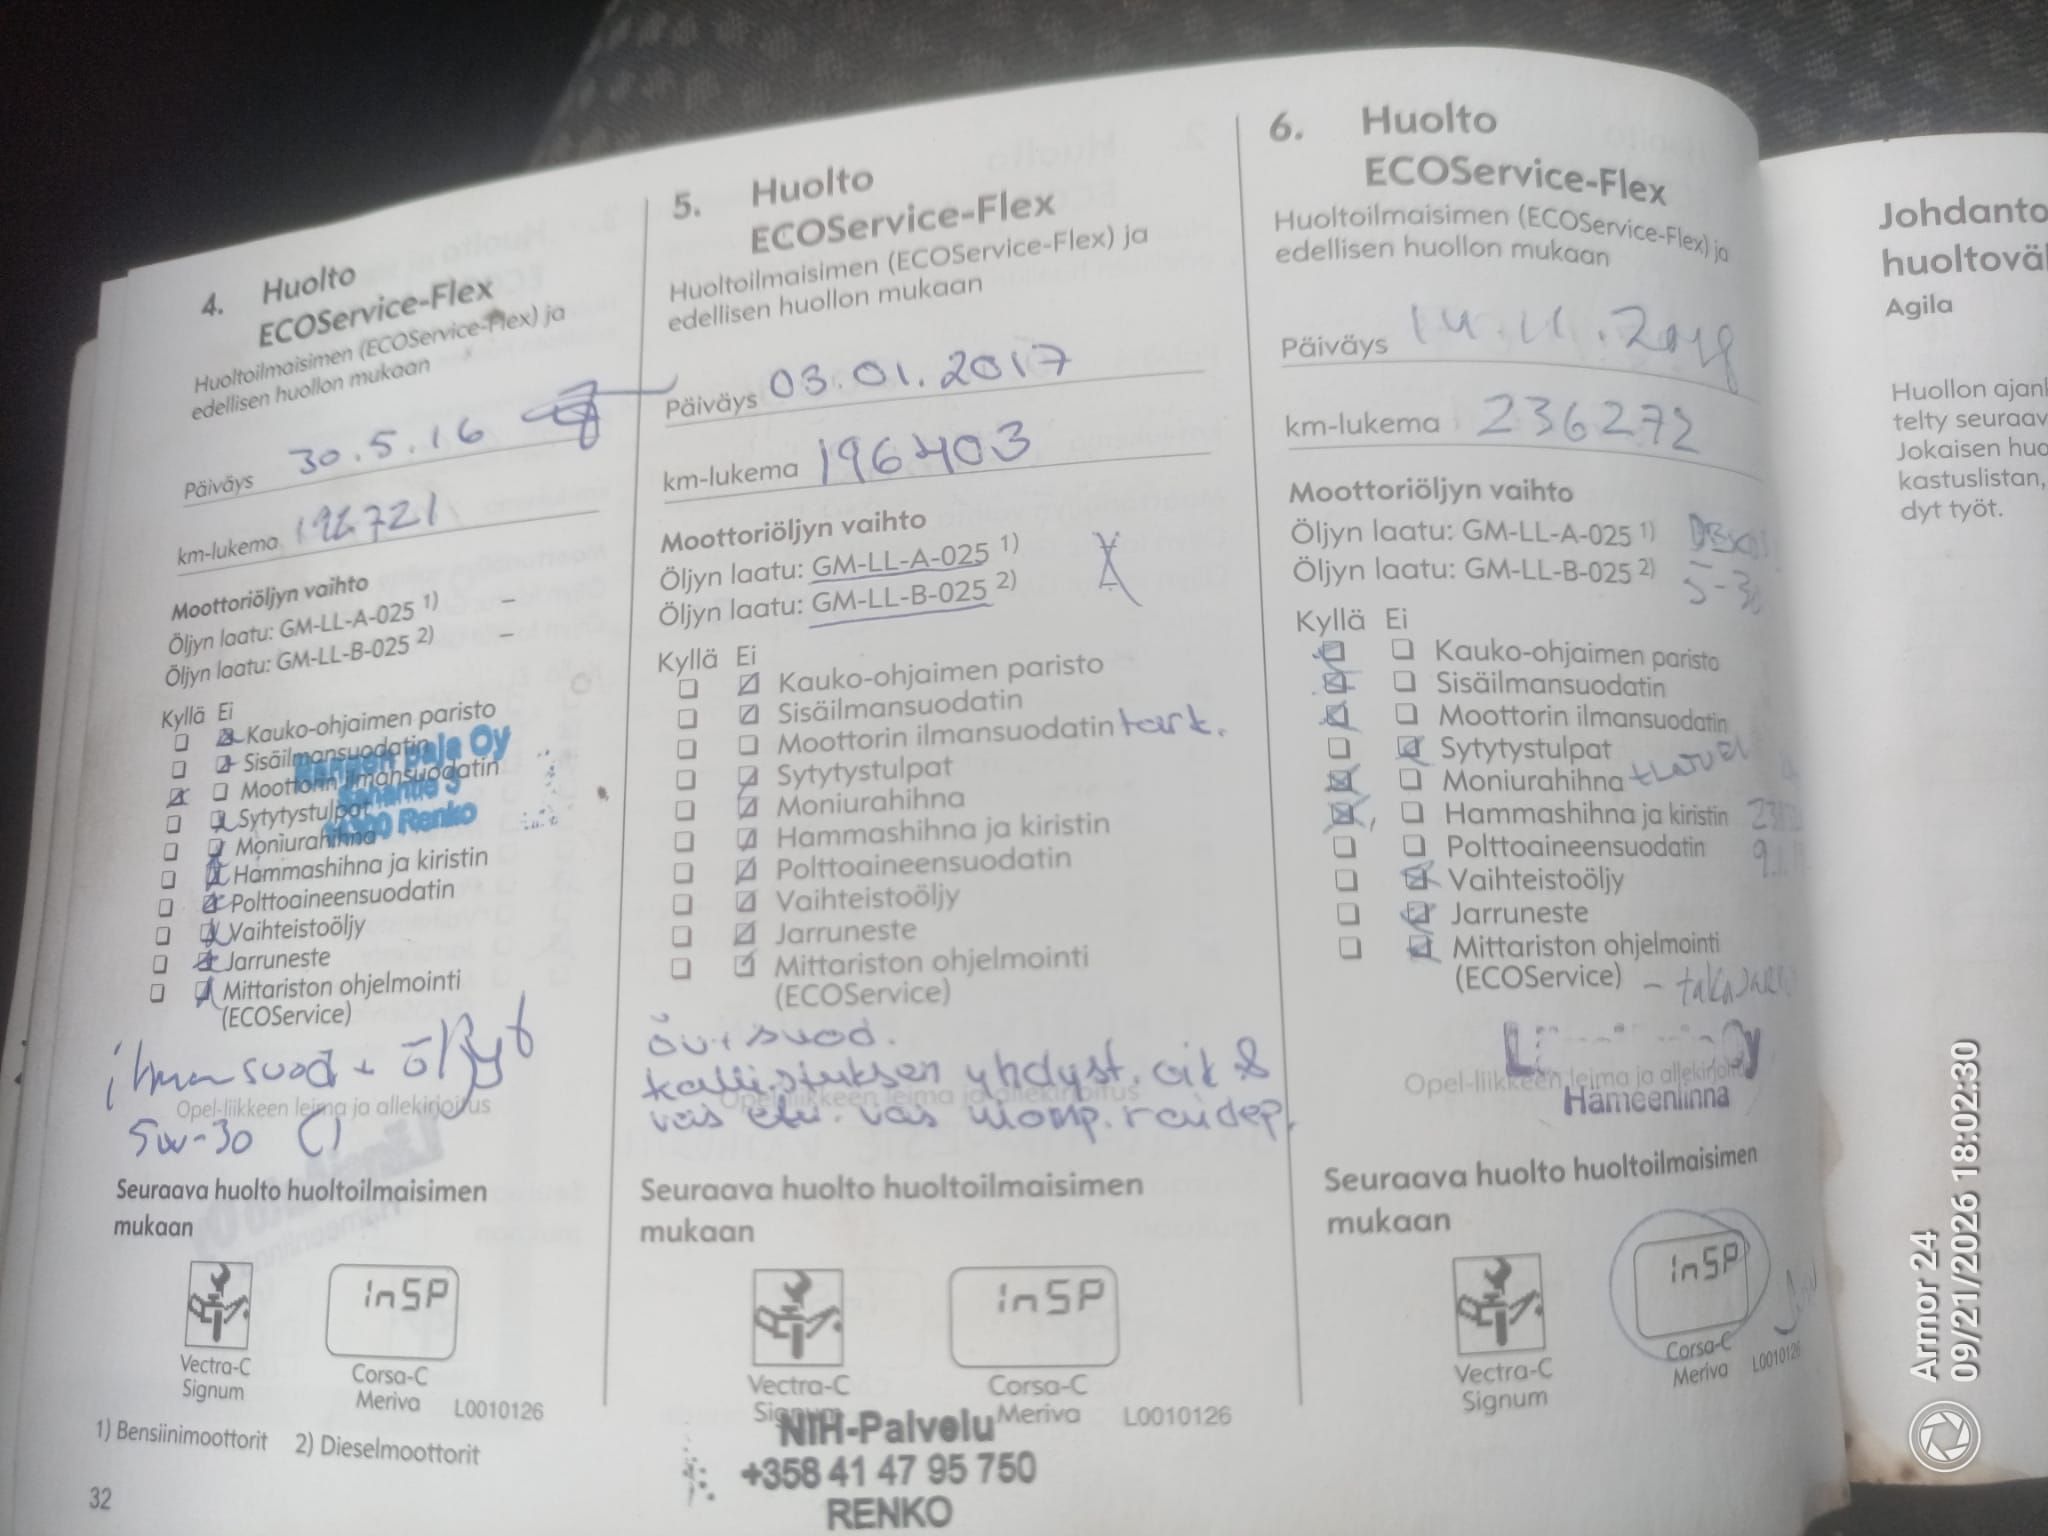 4. Huolto
ECOService-Flex
Huoltoilmaisimen (ECOService-Flex) ja
edellisen huollon mukaan
Päiväys 30.5.16
km-lukema
Moottoriöljyn vaihto
Öljyn laatu: GM-LL-A-025 1) –
Öljyn laatu: GM-LL-B-025 2) –
Kyllä Ei
Kauko-ohjaimen paristo
Sisäilmansuodatin
Moottorin ilmansuodatin
Sytytystulpat
Moniurahihna
Hammashihna ja kiristin
Polttoaineensuodatin
Vaihteistoöljy
Jarruneste
Mittariston ohjelmointi
(ECOService)
Paja Oy
Renko
ilmansuod + öljyt
Opel-liikkeen leima ja allekirjoitus
5w-30
Seuraava huolto huoltoilmaisimen
mukaan
InSP
Vectra-C
Signum
Corsa-C
Meriva
L0010126
1) Bensiinimoottorit 2) Dieselmoottorit
32
5. Huolto
ECOService-Flex
Huoltoilmaisimen (ECOService-Flex) ja
edellisen huollon mukaan
Päiväys 03.01.2017
km-lukema 196403
Moottoriöljyn vaihto
Öljyn laatu: GM-LL-A-025 1)
Öljyn laatu: GM-LL-B-025 2)
Kyllä Ei
Kauko-ohjaimen paristo
Sisäilmansuodatin
Moottorin ilmansuodatin tark.
Sytytystulpat
Moniurahihna
Hammashihna ja kiristin
Polttoaineensuodatin
Vaihteistoöljy
Jarruneste
Mittariston ohjelmointi
(ECOService)
suod.
kallistuksen yhdyst.
Opel-liikkeen leima ja allekirjoitus
vas etu. vas ulomp. raidep.
Seuraava huolto huoltoilmaisimen
mukaan
InSP
Vectra-C
Signum
Corsa-C
Meriva
L0010126
NIH-Palvelu
+358 41 47 95 750
RENKO
6. Huolto
ECOService-Flex
Huoltoilmaisimen (ECOService-Flex) ja
edellisen huollon mukaan
Päiväys 14.11.2018
km-lukema 236272
Moottoriöljyn vaihto
Öljyn laatu: GM-LL-A-025 1)
Öljyn laatu: GM-LL-B-025 2) 5-30
Kyllä Ei
Kauko-ohjaimen paristo
Sisäilmansuodatin
Moottorin ilmansuodatin
Sytytystulpat
Moniurahihna
Hammashihna ja kiristin
Polttoaineensuodatin
Vaihteistoöljy
Jarruneste
Mittariston ohjelmointi
(ECOService)
Oy
Opel-liikkeen leima ja allekirjoitus
Hämeenlinna
Seuraava huolto huoltoilmaisimen
mukaan
InSP
Vectra-C
Signum
Corsa-C
Meriva
L0010126
Johdanto
Agila
Jokaisen
kastuslistan,
dyt työt.
Armor 24
09/21/2026 18:02:30